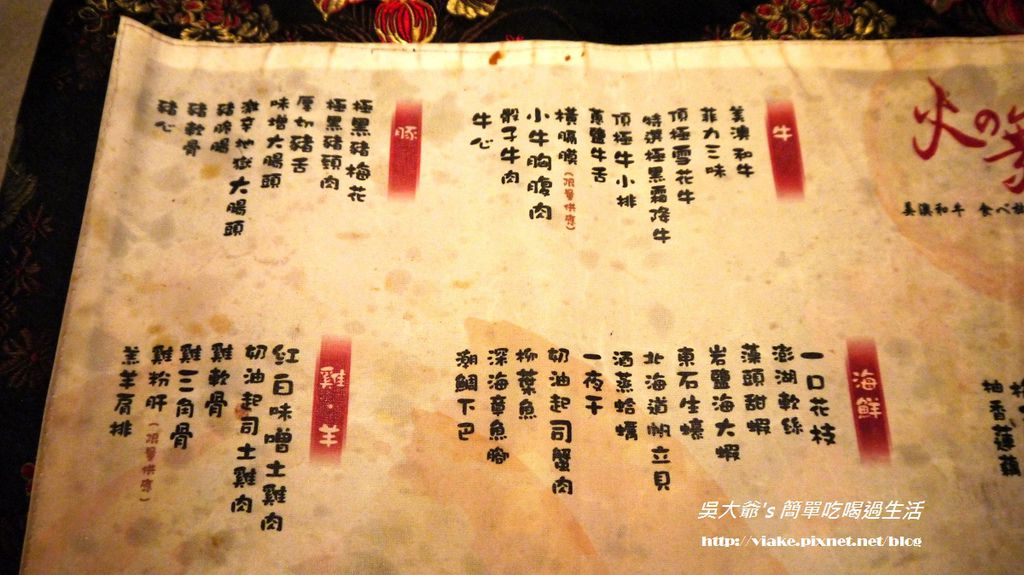 火の
美澳和牛 食べ
牛
美澳和牛
菲力三味
頂極雪花牛
特選極黑霜降牛
頂極牛小排
蔥鹽牛舌
橫膈膜(限量供應)
小牛胸腹肉
骰子牛肉
牛心
豚
極黑豬梅花
極黑豬頸肉
厚切豬舌
味增大腸頭
激辛地獄大腸頭
豬脆腸
豬軟骨
豬心
柚香蓮藕
海鮮
一口花枝
澎湖軟絲
藻頭甜蝦
岩鹽海大蝦
東石生蠔
北海道帆立貝
酒蒸蛤蠣
一夜干
奶油起司蟹肉
柳葉魚
深海章魚腳
潮鯛下巴
雞·羊
紅白味噌土雞肉
奶油起司土雞肉
雞軟骨
雞三角骨
雞粉肝(限量供應)
羔羊肩排
吳大爺's 簡單吃喝過生活
http://viake.pixnet.net/blog